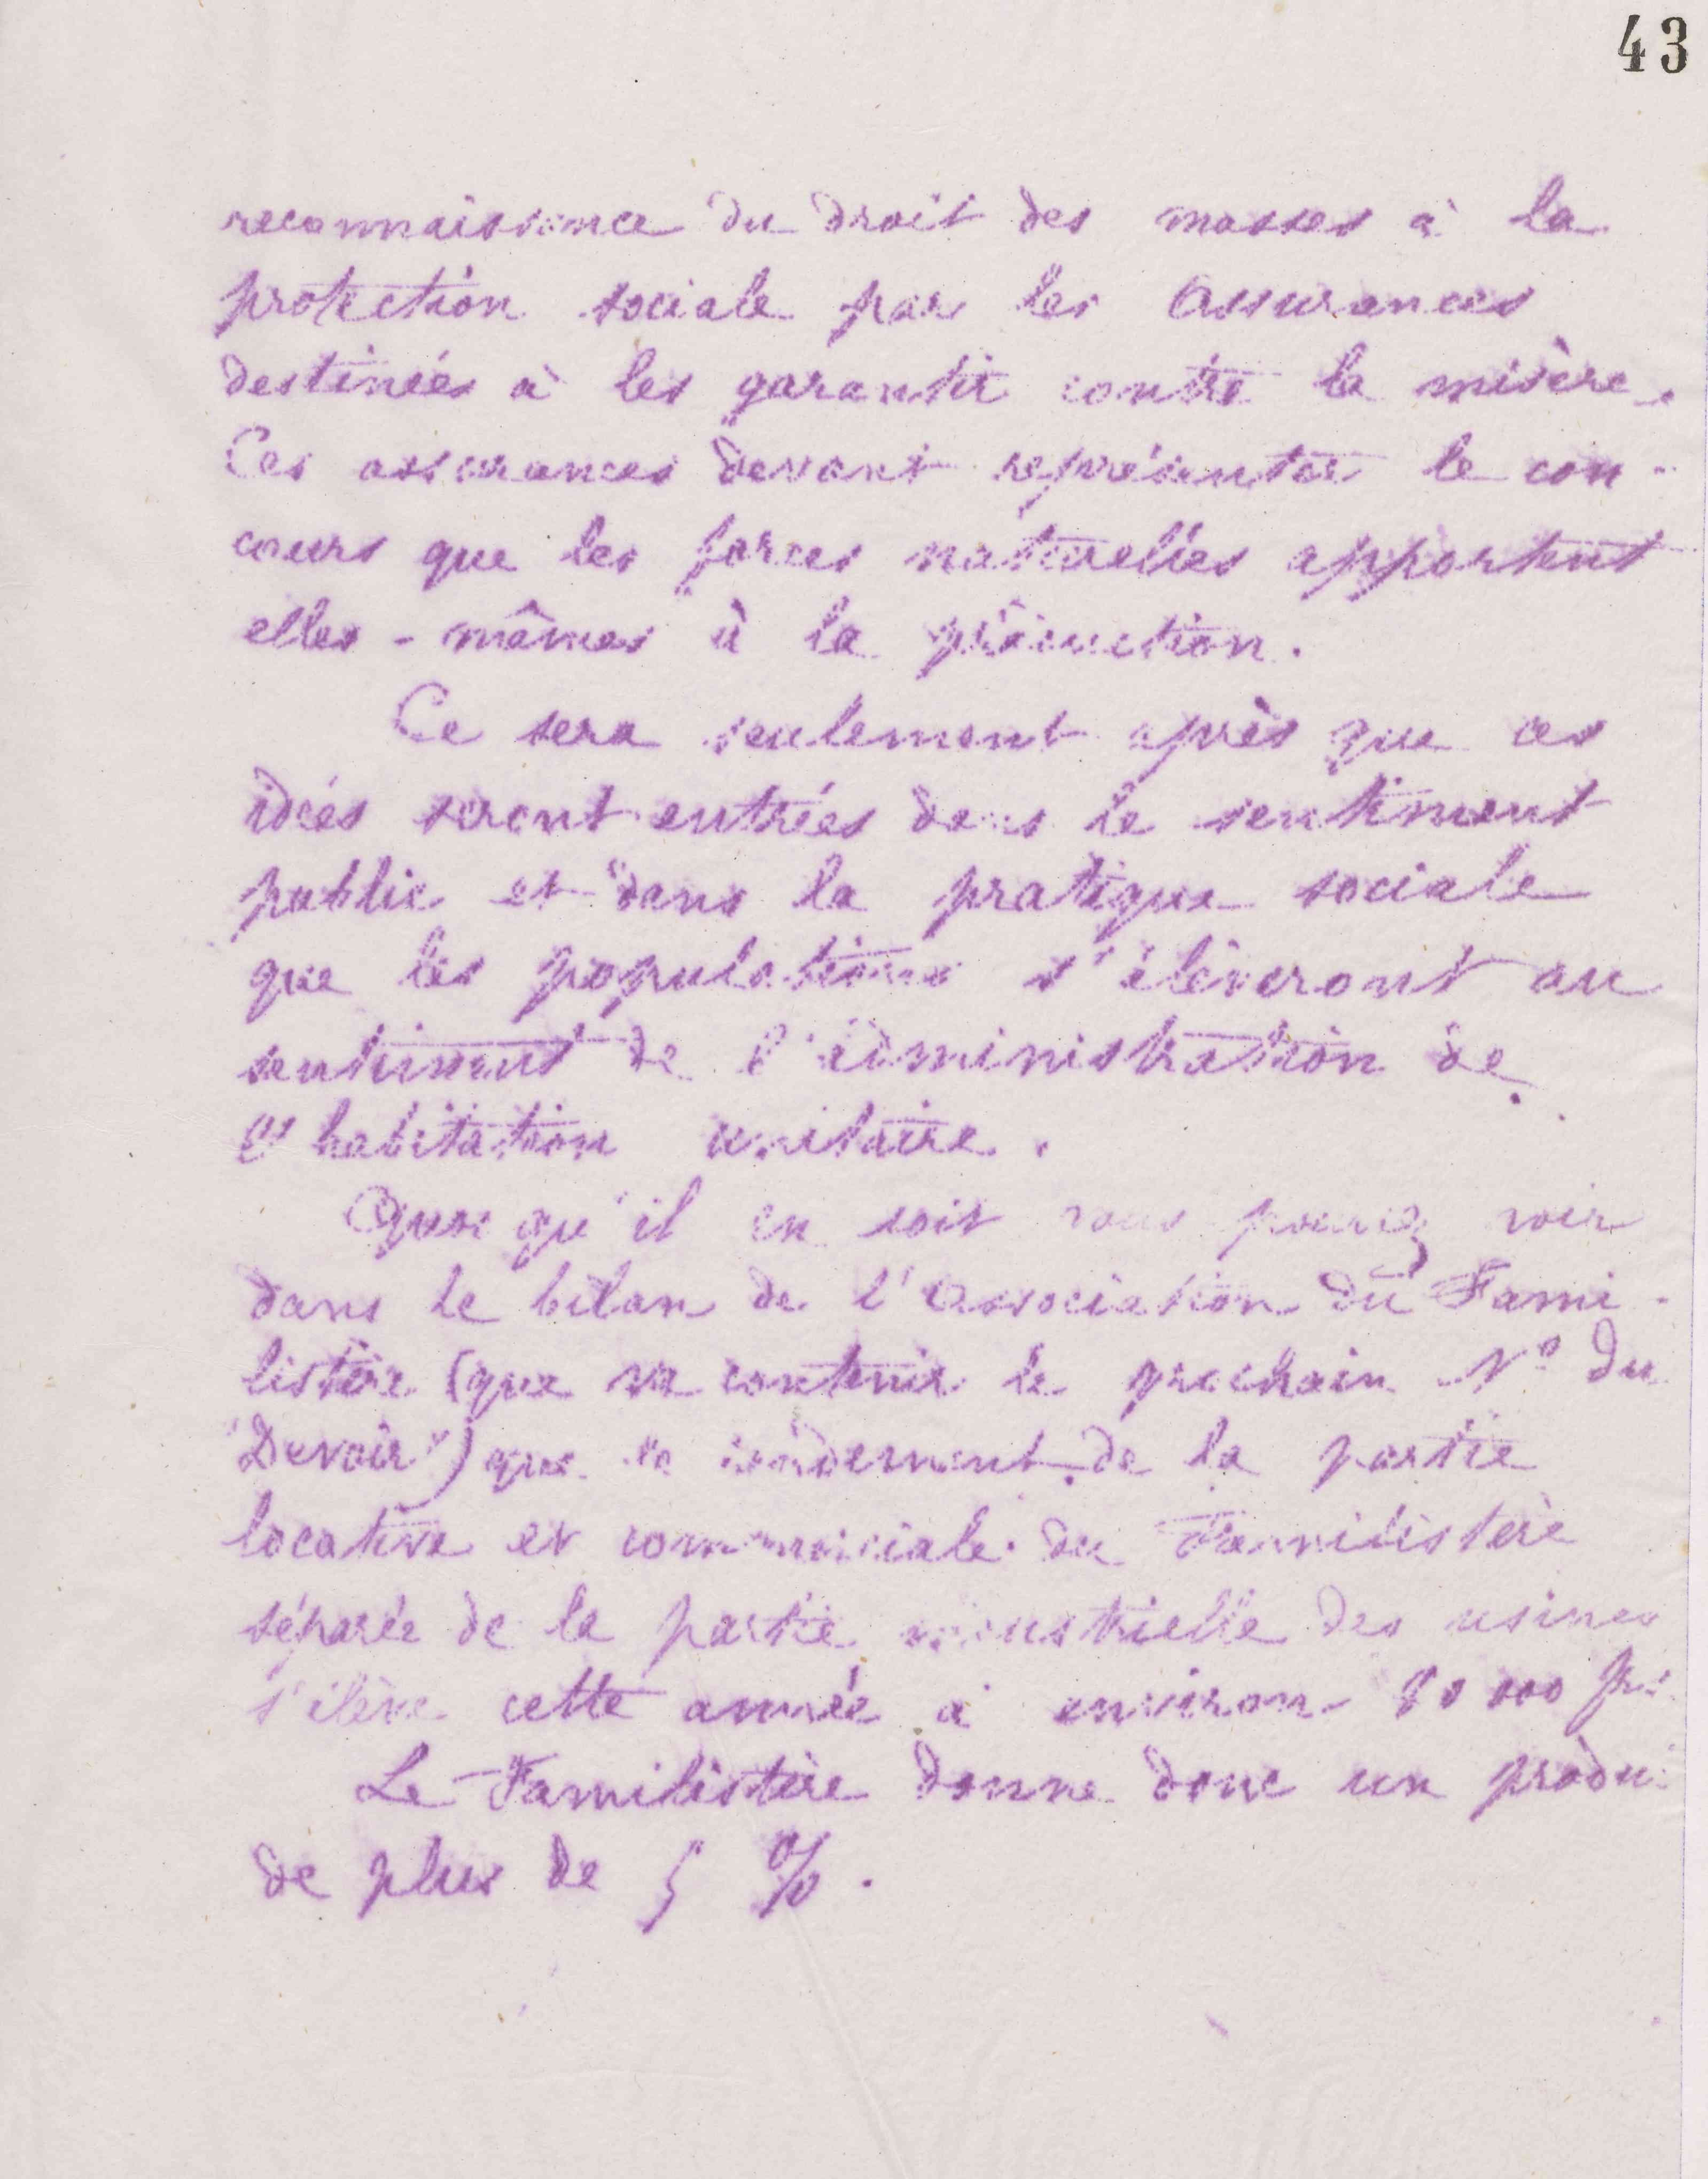 43
reconnaissance du droit des masses à la
protection sociale par les assurances
destinées à les garantir contre la misère.
Ces assurances devant représenter le con-
cours que les forces naturelles apportent
elles-mêmes à la production.
Ce sera seulement après que ces
idées seront entrées dans le sentiment
public et dans la pratique sociale
que les populations s'élèveront au
sentiment de l'administration de
l'habitation unitaire.
Quoi qu'il en soit vous pouvez voir
dans le bilan de l'Association du Fami-
listère (que va contenir le prochain N° du
"Devoir") que le rendement de la partie
locative et commerciale du Familistère
séparée de la partie industrielle des usines
s'élève cette année à environ 80 000 frs
Le Familistère donne donc un produi
de plus de 5 %.